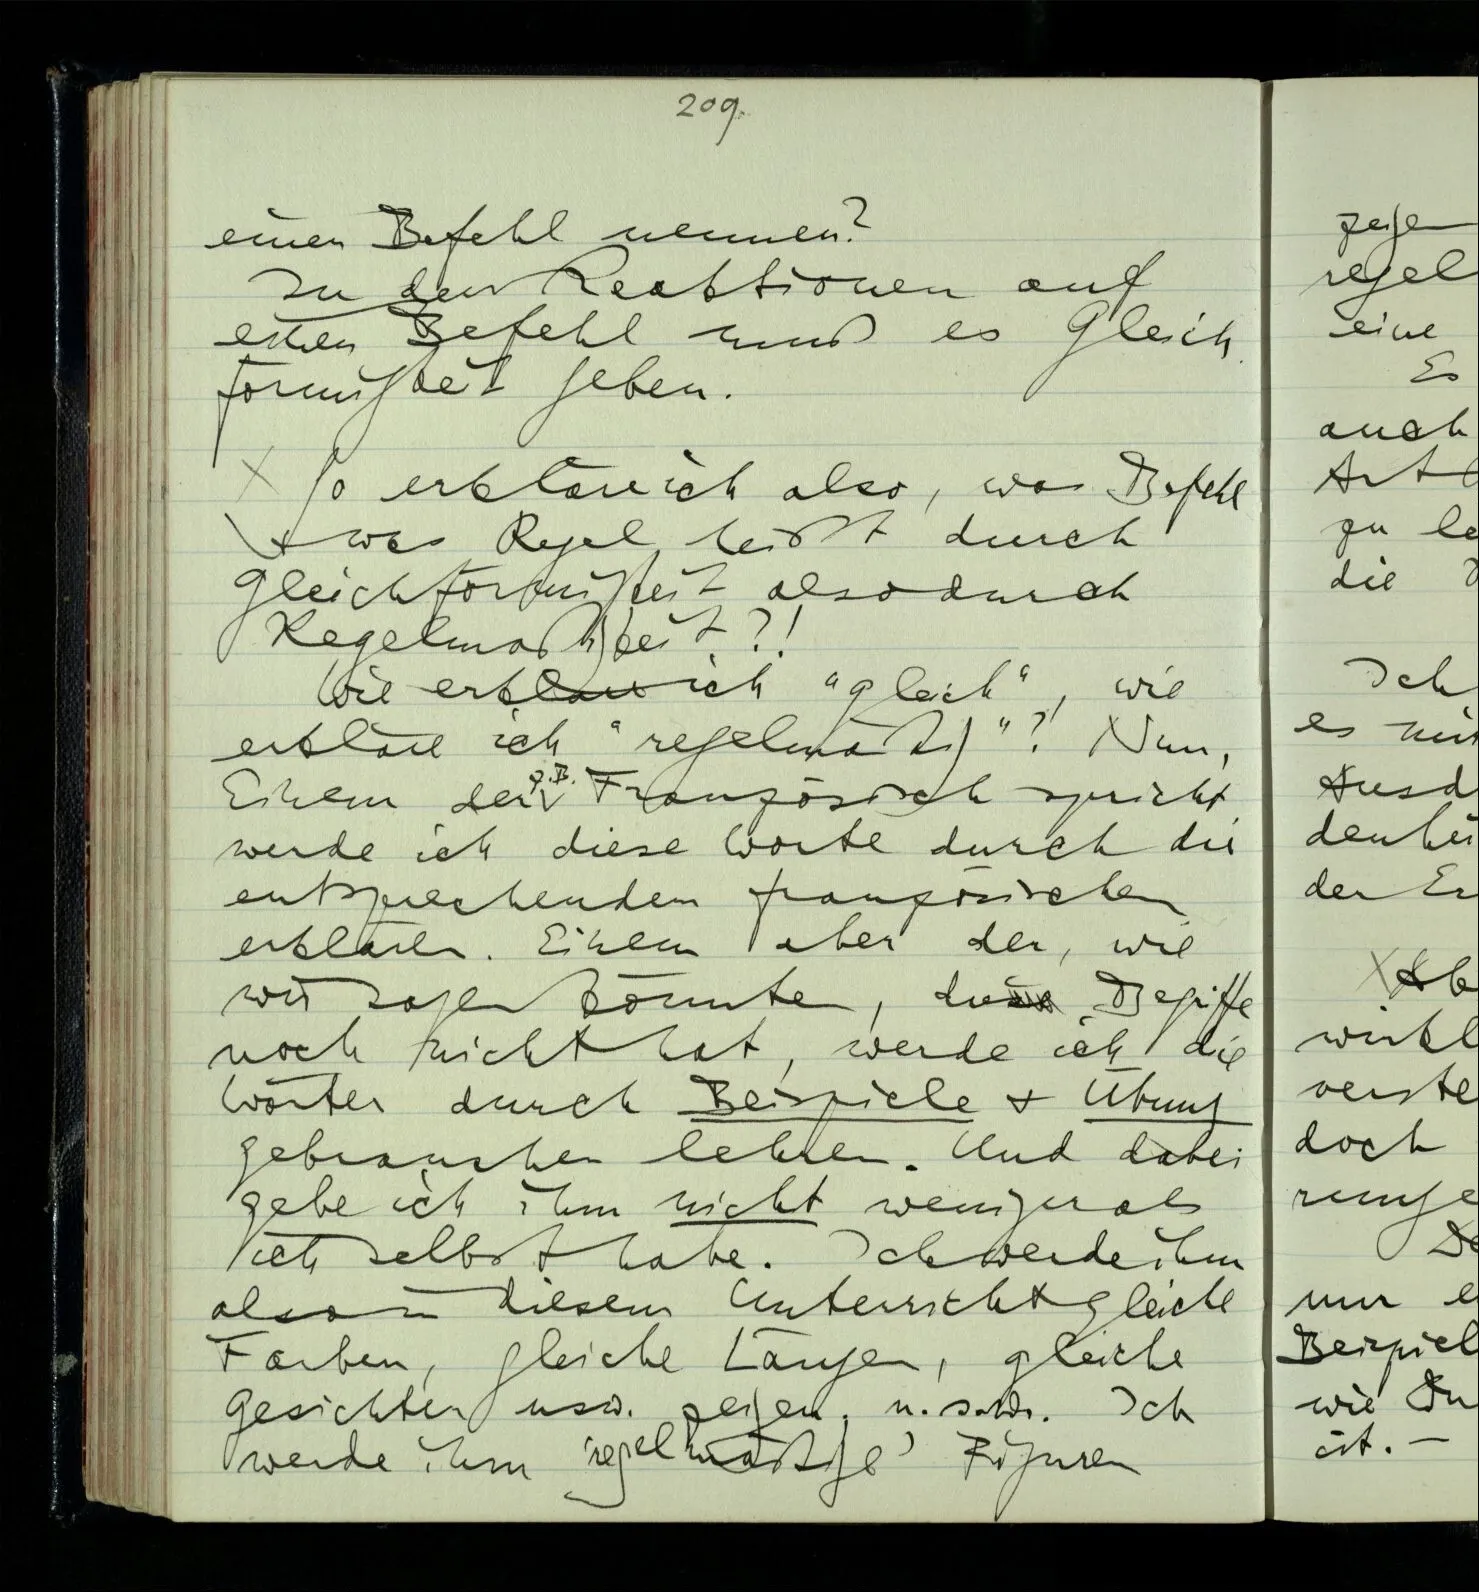 209.
einen Befehl nennen?
In den Reaktionen auf
einen Befehl muß es Gleich
förmigkeit geben.
X So erkläre ich also, was Befehl
\ + was Regel heißt durch
Gleichförmigkeit also durch
Regelmäßigkeit?!
Wie erkläre ich "gleich", wie
erkläre ich "regelmäßig"? Nun,
Einem der z.B. Französisch spricht
werde ich diese Worte durch die
entsprechenden französischen
erklären. Einem aber der, wie
wir sagen könnten, diese Begriffe
noch nicht hat, werde ich die
Wörter durch Beispiele + Übung
gebrauchen lehren. Und dabei
gebe ich ihm nicht weniger als
ich selbst habe. Ich werde ihm
also in diesem Unterricht gleiche
Farben, gleiche Längen, gleiche
Gesichter usw. zeigen. u.s.w. Ich
werde ihm 'regelmäßige' Figuren
zeigen
regel
eine
Es
auch
Art
zu le
die
Ich
es mir
Ausd
den hei
der Er
X Ab
wirkl
verste
doch
runge
De
nur e
Beispiel
wie Du
ist. –